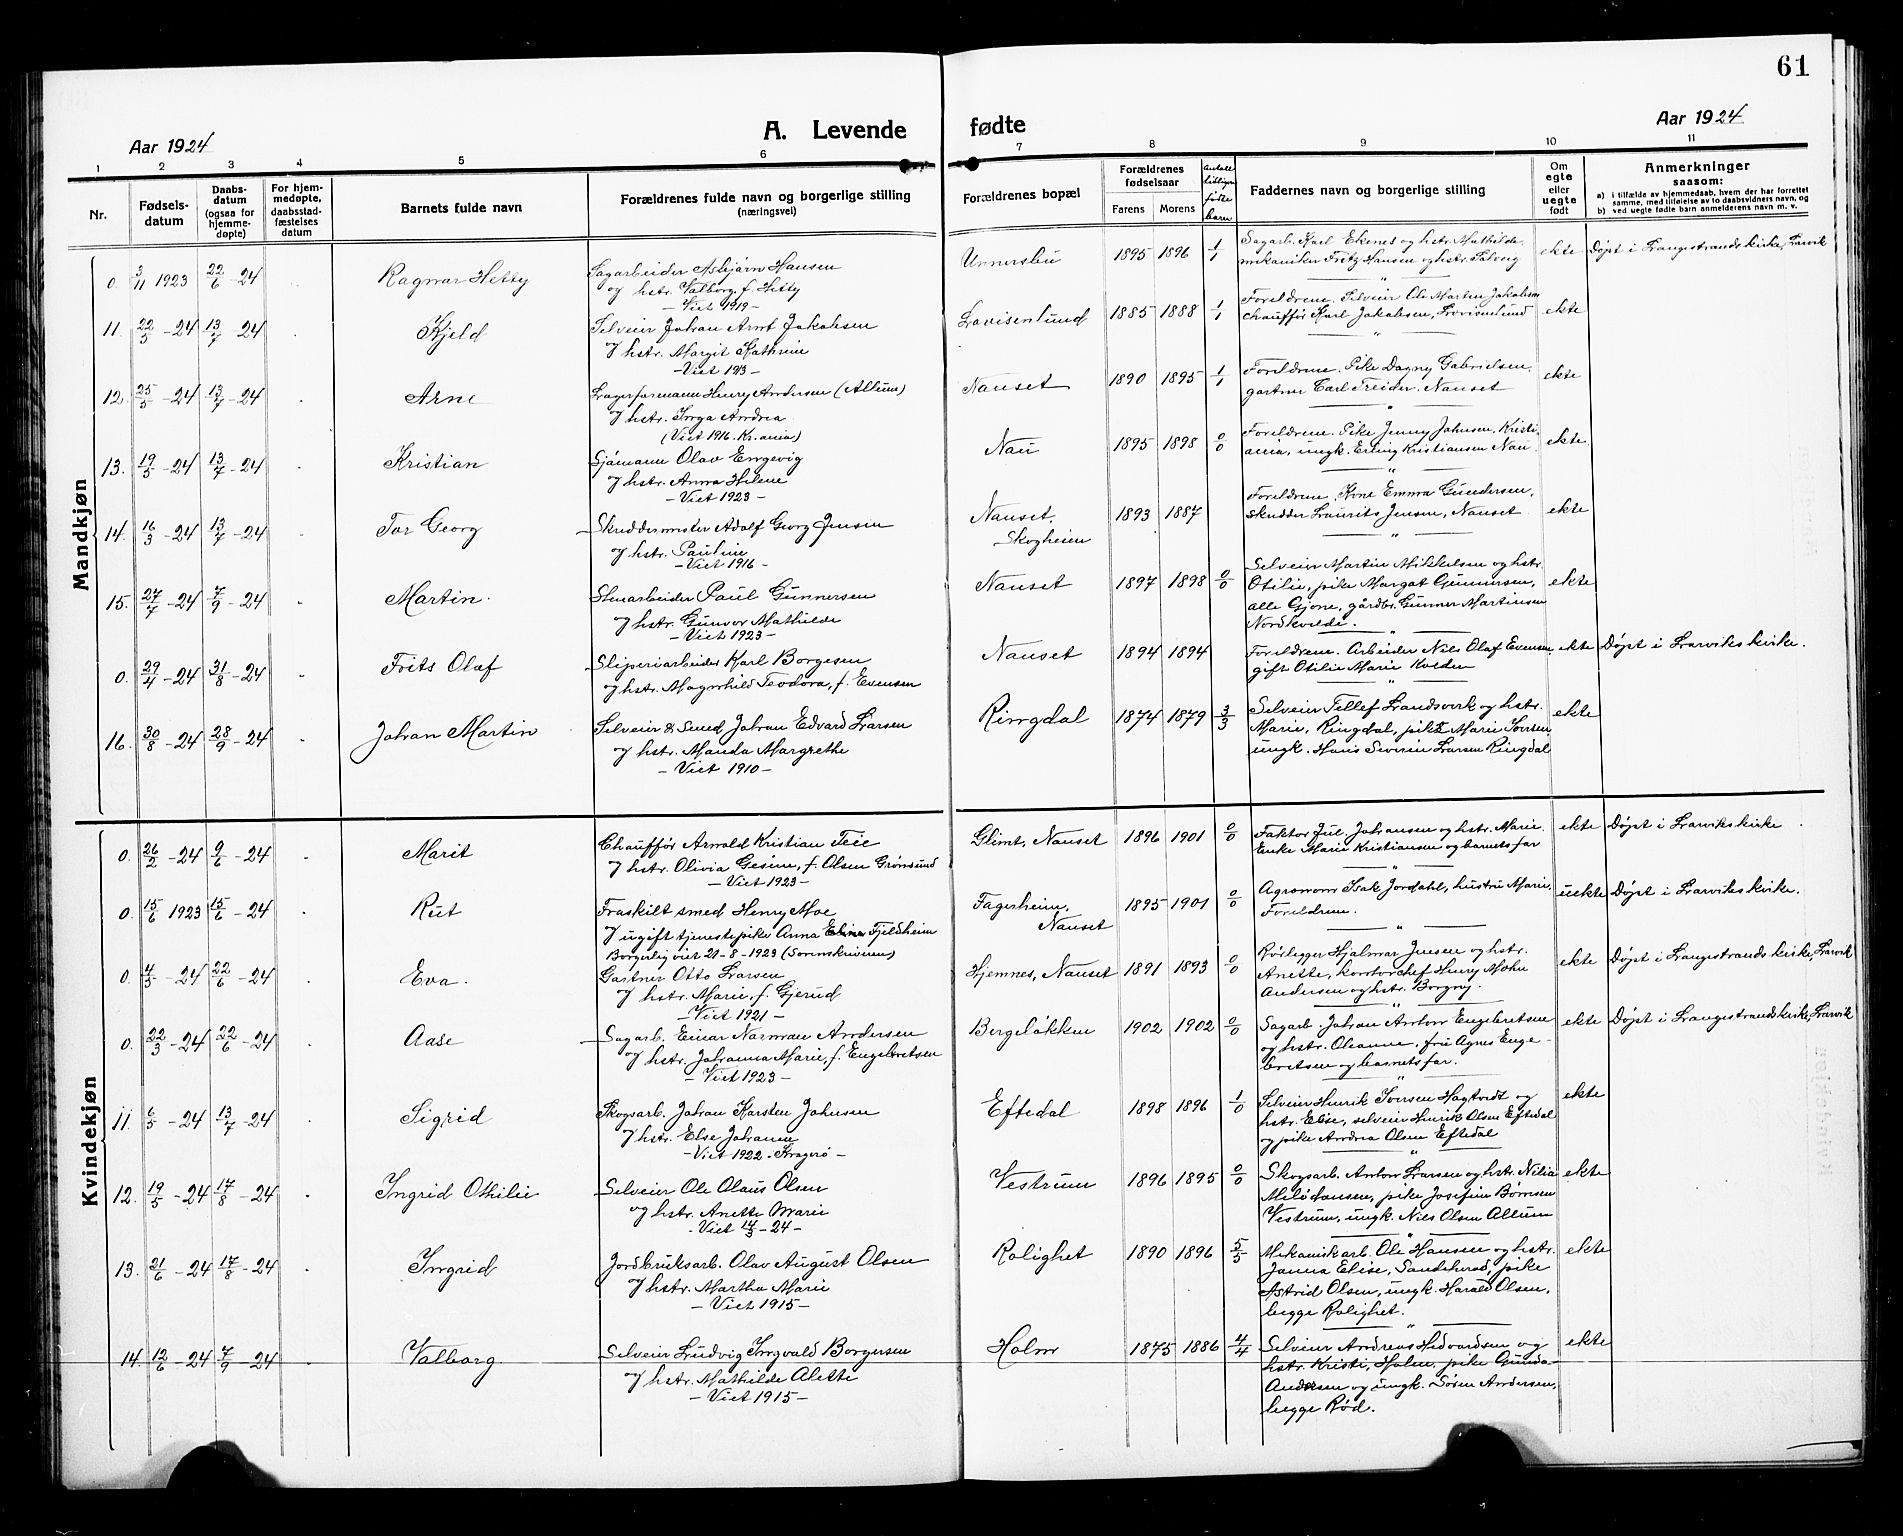 61
Aar 1924
A. Levende
fødte
Aar 1924
1 2 3 4 5 6 7 8 9 10 11
Nr.
Fødsels-
datum
Daabs-
datum
(ogsaa for
hjemme-
døpte)
For hjem-
medøpte,
daabsstad-
fæstelses
datum
Barnets fulde navn
Forældrenes fulde navn og borgerlige stilling
(næringsvei)
Forældrenes bopæl
Forældrenes
fødselsaar
Farens Morens
Faddernes navn og borgerlige stilling
Om
egte
eller
uegte
født
Anmerkninger
saasom:
a) i tilfælde av hjemmedaab, hvem der har forrettet
samme, med tilføielse av to daabsvidners navn, og
b) ved uegte fødte barn anmelderens navn m. v.
Mandkjøn
0. 3/11 1923 22/6-24 Ragnar Hetty
Sagarbeider Asbjørn Hansen
og hstr. Valborg, f. Hetty
- Viet 1919 -
Unnersbu 1895 1896 1/1
Sagarb. Karl Ekenes og hstr. Mathilde,
mekaniker Fritz Hansen og hstr. Solveig
ekte Døpt i Langestrands kirke, Larvik
11. 22/5-24 13/7-24 Kjeld
Selveier Johan Arnt Jakobsen
og hstr. Margit Kathrine
- Viet 1913 -
Lovisenlund 1885 1888 1/1
Foreldrene. Selveier Ole Martin Jakobsen
chauffør Karl Jakobsen, Lovisenlund
ekte
12. 25/5-24 13/7-24 Arne
Lagerformann Henry Andersen (Allum)
og hstr. Inga Andrea
(Viet 1916. Kr.ania)
Nanset 1890 1895 1/1
Foreldrene. Pike Dagny Gabrielsen,
gartner Carl Treider. Nanset
ekte
13. 19/5-24 13/7-24 Kristian
Sjømann Olav Engevig
og hstr. Anna Helene
- Viet 1923 -
Nau 1895 1898 0/0
Foreldrene. Pike Jenny Johnsen, Kristi-
ania, ungk. Erling Kristiansen Nau
ekte
14. 16/3-24 13/7-24 Tor Georg
Skreddermester Adolf Georg Jensen
og hstr. Pauline
- Viet 1916 -
Nanset,
Skogheim 1893 1887
Foreldrene, Kone Emma Gundersen,
skredder Laurits Jensen, Nanset
ekte
15. 27/7-24 7/9-24 Martin.
Stenarbeider Paul Gunnersen
og hstr. Gunvor Mathilde
- Viet 1923 -
Nanset 1897 1898 0/0
Selveier Martin Mikkelsen og hstr.
Otilie, pike Margot Gunnersen,
alle Gjone, gårdbr. Gunner Martinsen
Nordkvelde.
ekte
0. 29/4-24 31/8-24 Frits Olaf
Sliperiarbeider Karl Borgesen
og hstr. Magnhild Teodora, f. Evensen
Nanset 1894 1894
Foreldrene. Arbeider Nils Olaf Evensen,
gift Otilie Marie Kvelden
ekte Døpt i Larviks kirke.
16. 30/8-24 28/9-24 Johan Martin
Selveier & Smed Johan Edvard Larsen
og hstr. Manda Margrethe
- Viet 1910 -
Ringdal 1874 1879 3/3
Selveier Tellef Landsverk og hstr.
Marie, Ringdal, pike Marie Iversen
ungk. Hans Severin Larsen Ringdal
ekte
Kvindekjøn
0. 26/2-24 9/6-24 Marit
Chauffør Arnold Kristian Teie
og hstr. Olivia Gesine, f. Olsen Grønsund
- Viet 1923 -
Glimt, Nanset 1896 1901 0/0
Faktor Jul. Johansen og hstr. Marie.
Enke Marie Kristiansen og barnets far
ekte Døpt i Larviks kirke
0. 15/6 1923 15/6-24 Rut
Fraskilt smed Henry Moe
og ugift tjenestepike Anna Eline Fjeldheim
Borgerlig viet 21-8-1923 (Sorenskriveren)
Fagerheim,
Nanset 1895 1901 0/0
Agronom Isak Jordahl, hustru Marie,
Foreldrene.
uekte Døpt i Larviks kirke.
0. 4/5-24 22/6-24 Eva.
Gartner Otto Larsen
og hstr. Marie, f. Gjerud
- Viet 1921 -
Hjemnes, Nanset 1891 1893 0/0
Rørlegger Hjalmar Jensen og hstr.
Anette, kontorchef Henry Møhn
Andersen og hstr. Borgny.
ekte Døpt i Langestrands kirke, Larvik
0. 22/3-24 22/6-24 Aase
Sagarb. Einar Norman Andersen
og hstr. Johanna Marie, f. Engebretsen
- Viet 1923 -
Bergeløkken 1902 1902 0/0
Sagarb. Johan Anton Engebretsen
og hstr. Oleanne, fru Agnes Enge-
bretsen og barnets far.
ekte Døpt i Langestrands kirke, Larvik
11. 6/5-24 13/7-24 Sigrid
Skogsarb. Johan Karsten Johnsen
og hstr. Else Johanne
- Viet 1922. Kragerø -
Eftedal 1898 1896 1/0
Selveier Henrik Iversen Hagtvedt og
hstr. Elise, selveier Henrik Olsen Eftedal
og pike Andrea Olsen Eftedal
ekte
12. 19/5-24 17/8-24 Ingrid Othilie
Selveier Ole Olaus Olsen
og hstr. Anette Marie
- Viet 14/3-24 -
Vestrum 1896 1895 0/0
Skogsarb. Anton Larsen og hstr. Nilia
Melø Hansen, pike Josefine Børresen
Vestrum, ungk. Nils Olsen Allum
ekte
13. 21/6-24 17/8-24 Ingrid
Jordbruksarb. Olav August Olsen
og hstr. Martha Marie
- Viet 1915 -
Rolighet 1890 1896 5/5
Mekanisk arb. Ole Hansen og hstr.
Janna Elise, Sandefjord, pike
Astrid Olsen, ungk. Harald Olsen,
begge Rolighet.
ekte
14. 12/6-24 7/9-24 Valborg.
Selveier Ludvig Ingvald Borgersen
og hstr. Mathilde Alette
- Viet 1915 -
Holm 1875 1886 4/4
Selveier Andreas Hedvardsen og
hstr. Kristi, Holm, pike Gunda
Andersen og ungk. Søren Andersen,
begge Rød.
ekte